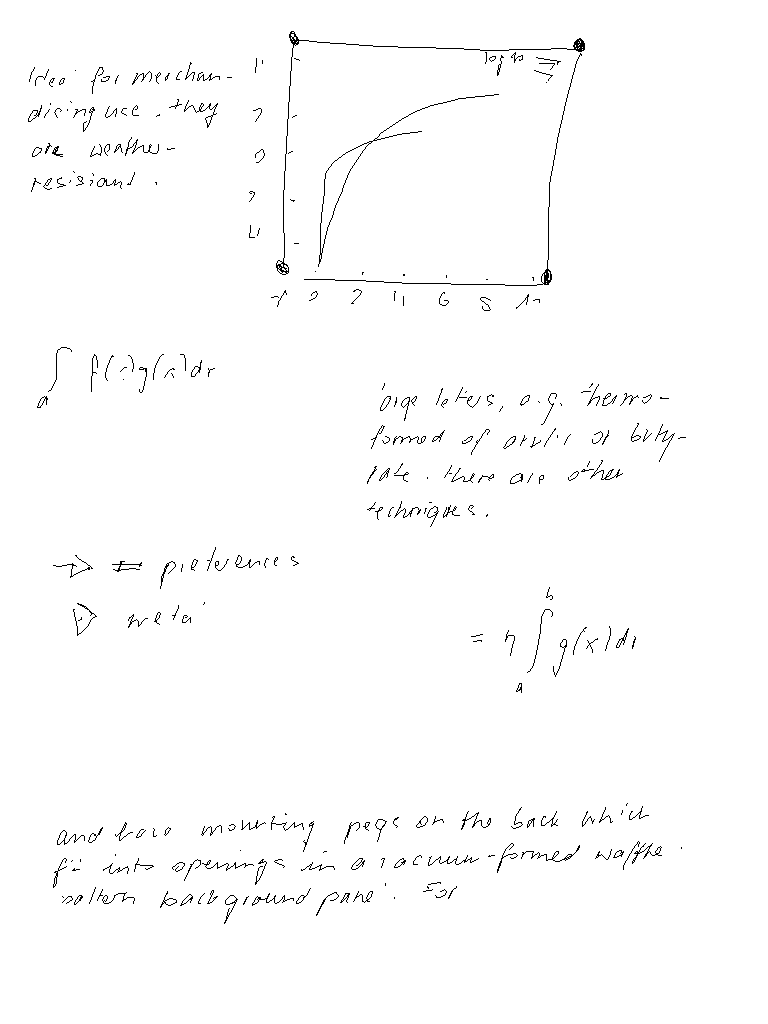 Ideal for merchan-
dising use. they
are weather-
resistant.
2 4 6 8
∫ f(x)g(x)dx
a
large letters, e.g. thermo-
formed of acrylic or buty-
rate. there are other
techniques.
→ = preferences
b
= η ∫ g(x)dx
a
and have mounting pegs on the back which
fit into openings in a vacuum-formed waffle
pattern background panel. For